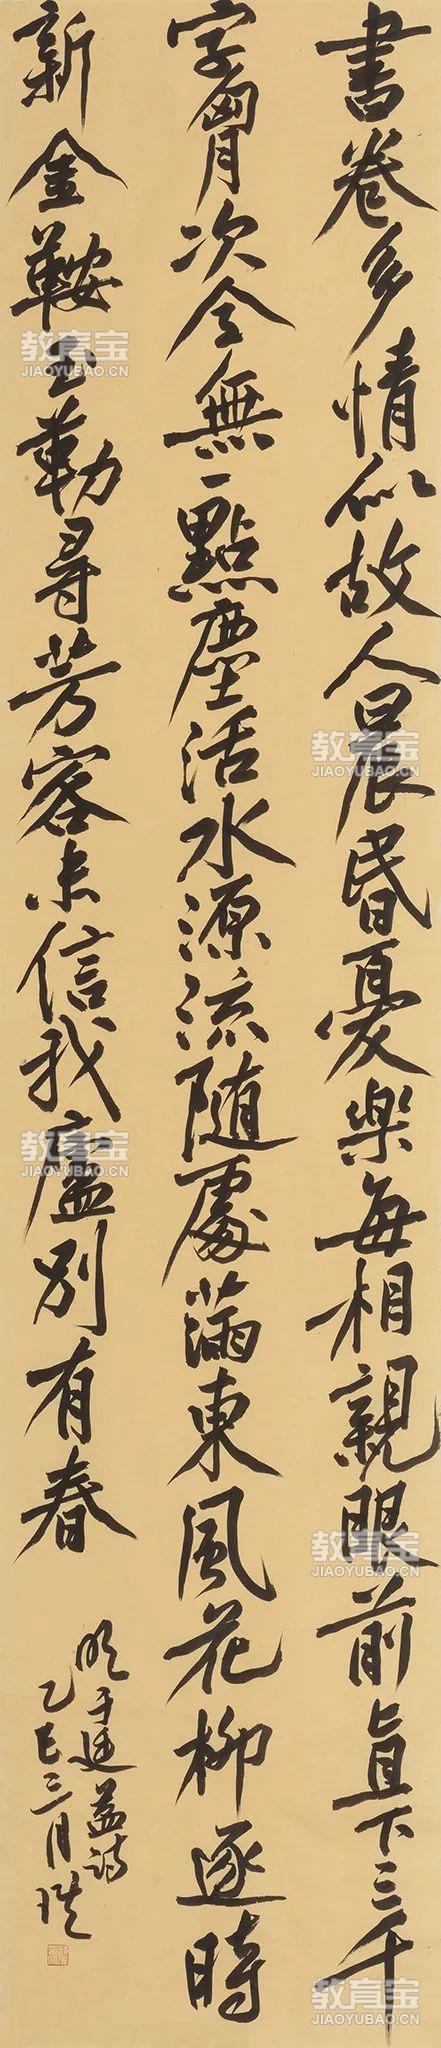 書卷多情似故人晨昏憂樂每相親眼前直下三千
字胷次全無一點塵活水源流隨處滿東風花柳逐時
新金鞍玉勒尋芳客未信我廬別有春
明于廷益詩
乙巳三月
教育宝
JIAOYUBAO.CN
教育宝
JIAOYUBAO.CN
教育宝
JIAOYUBAO.CN
教育宝
JIAOYUBAO.CN
教育宝
JIAOYUBAO.CN
教育宝
JIAOYUBAO.CN